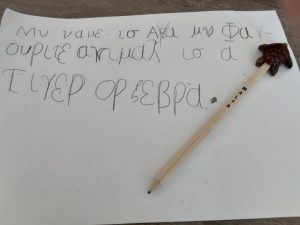 Μυ. ναμε. ισ Αγα μυ Φαν-
ουριτε ανιμαλ ισ α
Τιγερ ορ ζεβρα.